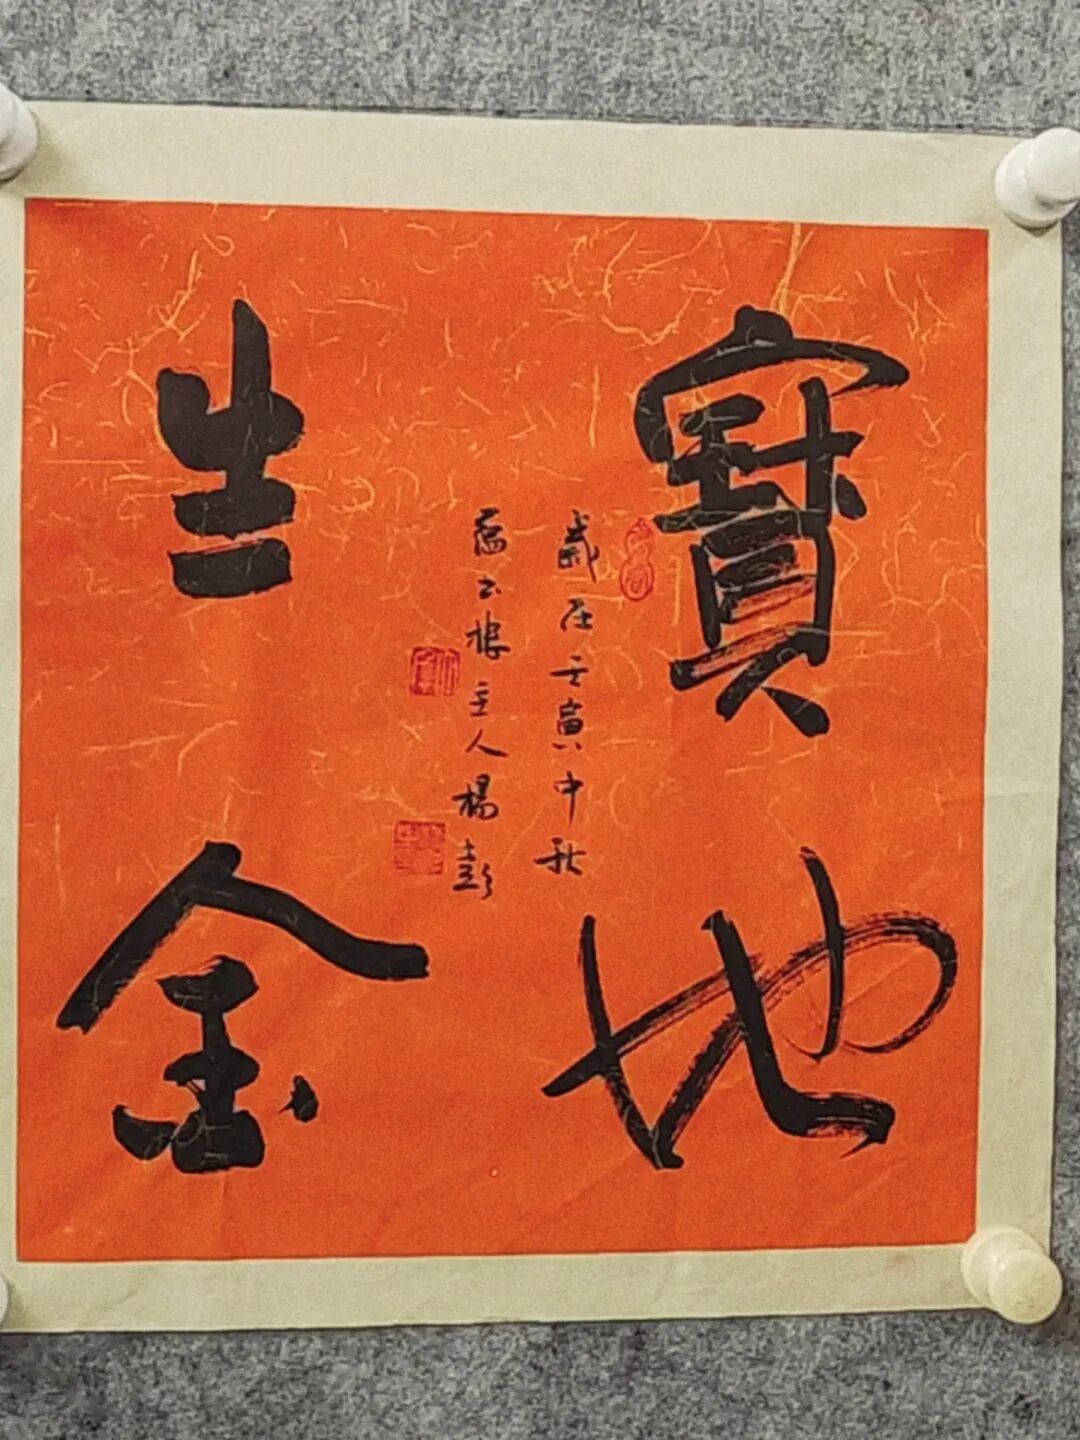 寶地
生金
歲在壬寅中秋
樓主人楊彭